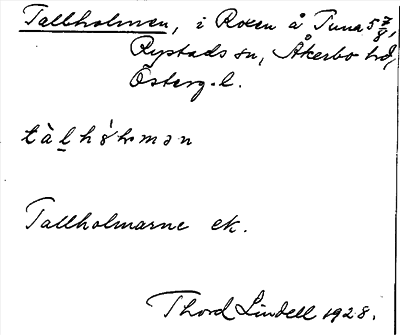 Tallholmen, i Roxen å Tuna 5 7/8,
Rystads sn, Åkerbo hd,
Österg. l.
Tallholmarne ek.
Thord Lindell 1928.